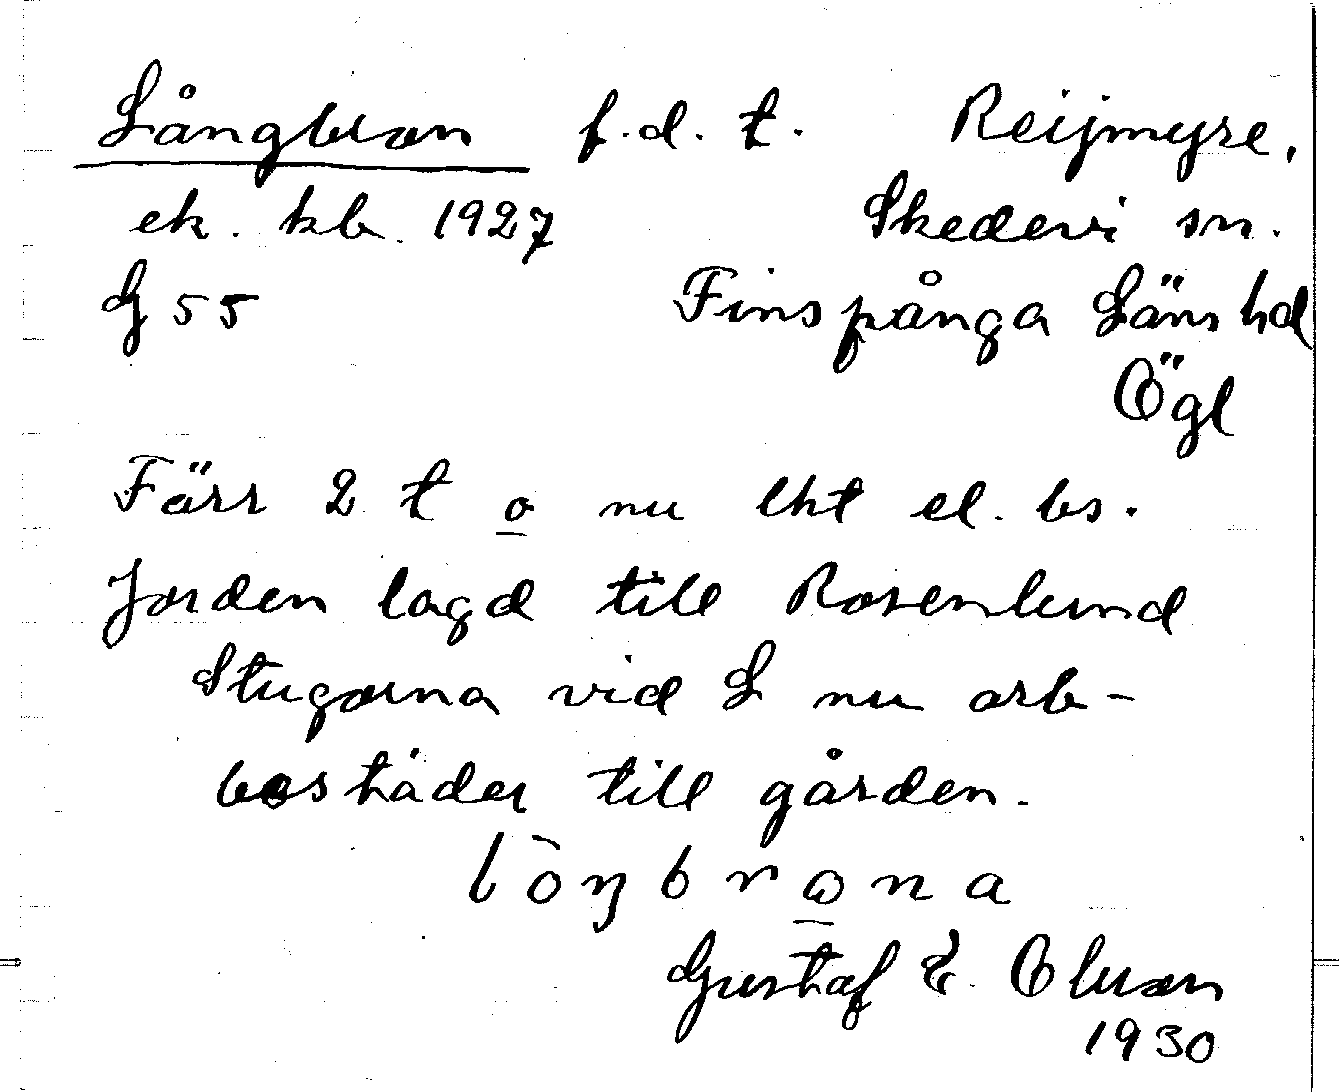 Långbron f.d. t. Reijmyre,
ek. kb. 1927 Skedevi sn.
G 55 Finspånga Läns hd
Ögl
Färr 2 t o nu lht el. bs.
Jorden lagd till Rosenlund
Stugorna vid L nu arb-
bostäder till gården.
Gustaf E. Olsson
1930